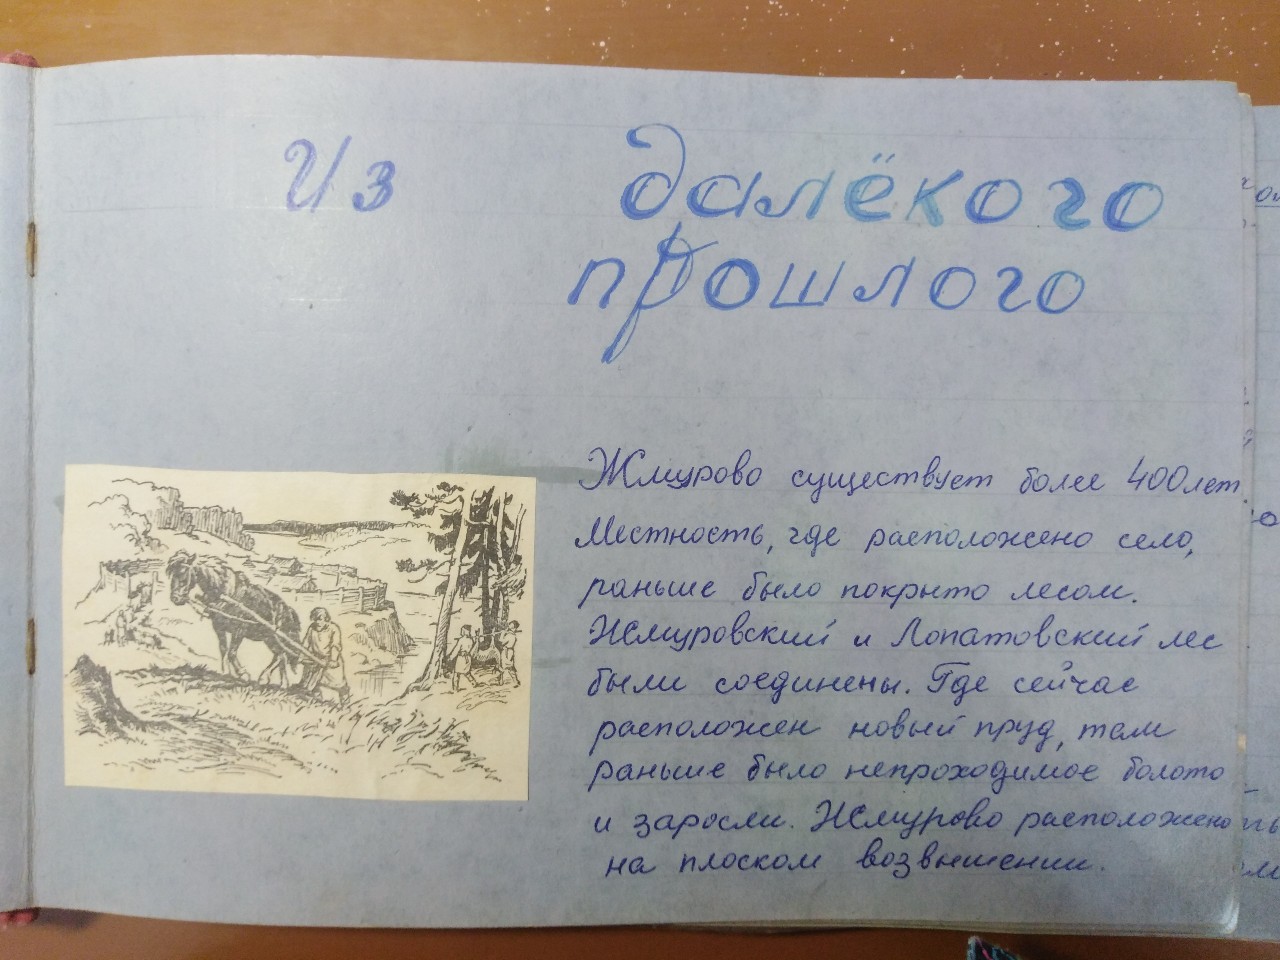 Из далёкого
прошлого
Жмурово существует более 400 лет.
Местность, где расположено село,
раньше было покрыто лесом.
Жмуровский и Лопатовский лес
были соединены. Где сейчас
расположен новый пруд, там
раньше было непроходимое болото
и заросли. Жмурово расположено
на плоском возвышении.